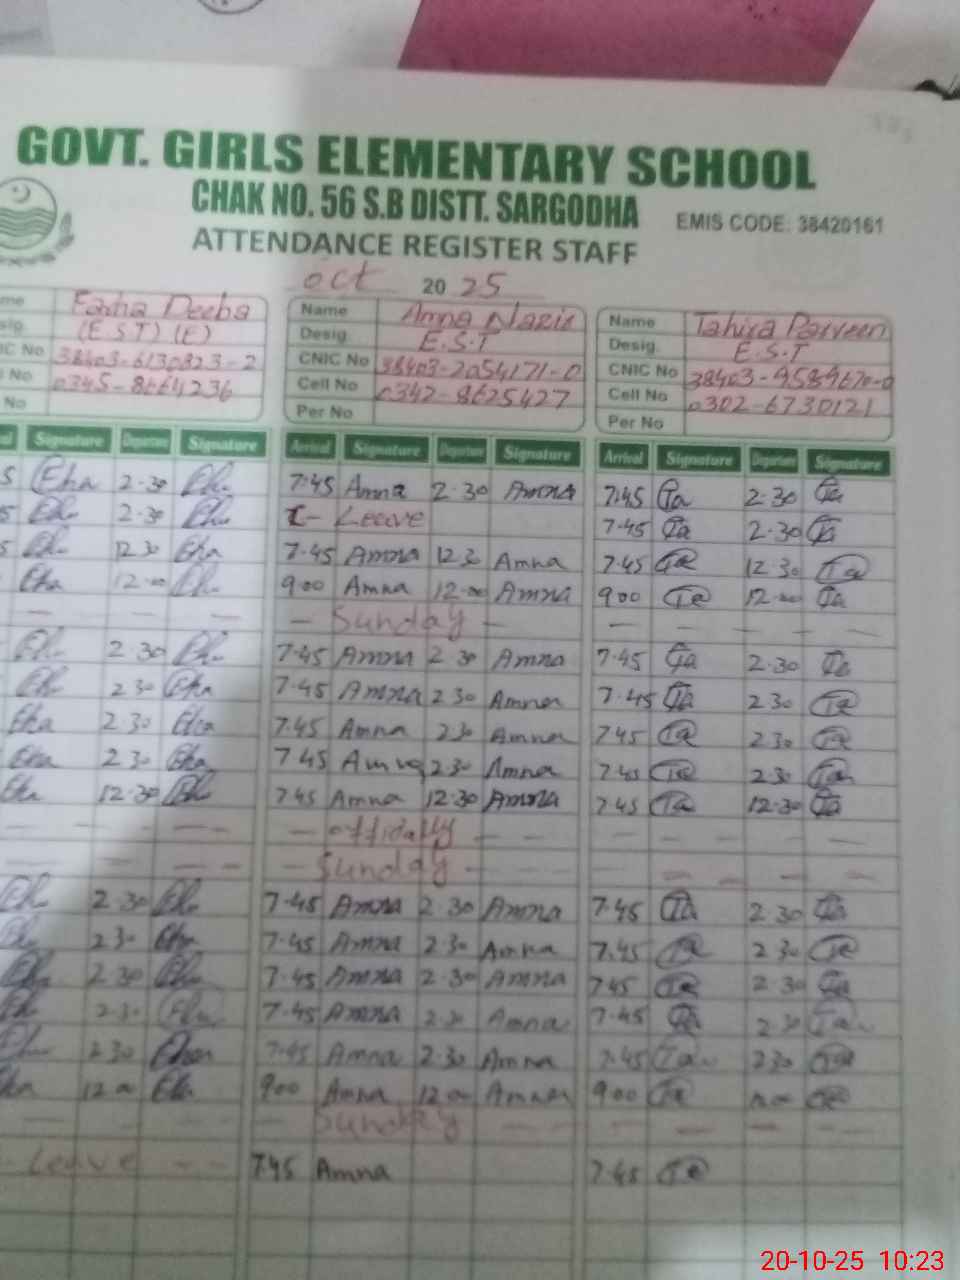 GOVT. GIRLS ELEMENTARY SCHOOL
CHAK NO. 56 S.B DISTT. SARGODHA EMIS CODE: 38420161
ATTENDANCE REGISTER STAFF
oct 2025
me Farha Deeba Name Amna Nazir Name Tahira Parveen
sig. (E.S.T) (E) Desig. E.S.T Desig. E.S.T
IC No 38403-6130823-2 CNIC No 38403-2054171-0 CNIC No 38403-9589670-0
No 0345-8664236 Cell No 0342-8625427 Cell No 0302-6730121
No Per No Per No
al Signature Departure Signature Arrival Signature Departure Signature Arrival Signature Departure Signature
5 Eha 2.30 Eh 7.45 Amna 2.30 Amna 7.45 Ta 2.30 Ta
5 Eh 2.30 Eh L- Leave 7.45 Ta 2.30 Ta
5 Eh 12 30 Eha 7.45 Amna 12 30 Amna 7.45 Ta 12.30 Ta
Eha 12.00 Eh 900 Amna 12.00 Amna 900 Ta 12.00 Ta
— — — — Sunday — — — — —
Eh 2 30 Eh 7.45 Amna 2 30 Amna 7.45 Ta 2.30 Ta
Eh 2 30 Eha 7.45 Amna 2 30 Amna 7.45 Ta 2 30 Ta
Eha 2.30 Eha 7.45 Amna 2 30 Amna 7.45 Ta 2 30 Ta
Eha 2 30 Eha 7 45 Amna 2 30 Amna 7.45 Ta 2 30 Ta
Eha 12.30 Eh 7.45 Amna 12.30 Amna 7.45 Ta 12.30 Ta
— — — — offically — — — — — —
— — — — Sunday — — — — — —
Eh 2.30 Eh 7.45 Amna 2.30 Amna 7.45 Ta 2.30 Ta
Eh 2 30 Eha 7.45 Amna 2.30 Amna 7.45 Ta 2 30 Ta
Eh 2.30 Eh 7.45 Amna 2.30 Amna 7.45 Ta 2 30 Ta
Eh 2.30 Eha 7.45 Amna 2.30 Amna 7.45 Ta 2 30 Ta
Eh 2 30 Eha 7.45 Amna 2.30 Amna 7.45 Ta 2 30 Ta
Eha 12 00 Eha 900 Amna 12 00 Amna 900 Ta 12.00 Ta
— — — Sunday — — — — — —
- Leave - - 7.45 Amna 7.45 Ta
20-10-25 10:23